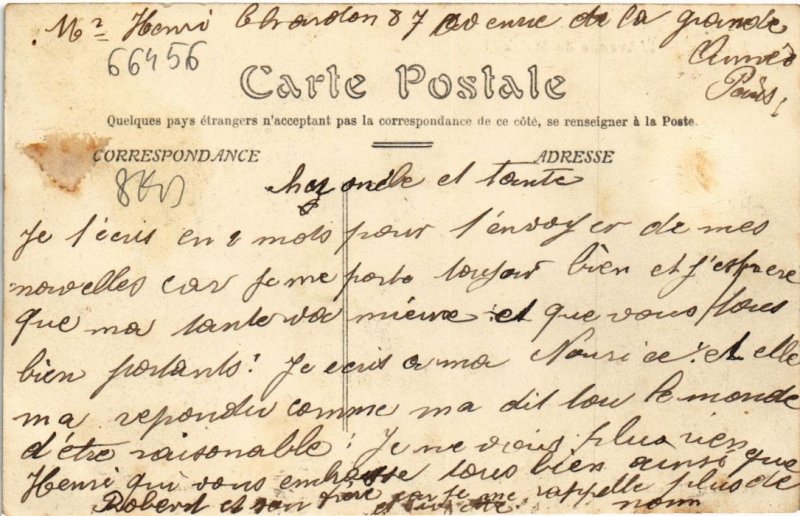 Mr Henri Chardon 87 avenue de la grande
Armée
Paris
66456
Carte Postale
Quelques pays étrangers n'acceptent pas la correspondance de ce côté, se renseigner à la Poste.
CORRESPONDANCE
ADRESSE
chez oncle et tante
Je t'écris en 2 mots pour t'envoyer de mes
nouvelles car je me porte toujour bien et j'espere
que ma tante va mieux et que vous tous
bien portants. Je ecris a ma Nourice et elle
ma repondu comme ma dit tou le monde
d'être raisonable! Je ne vois plus rien que
Henri qui vous embrasse tous bien ainsi que
Robert et son frère car je me rappelle plus de
nom